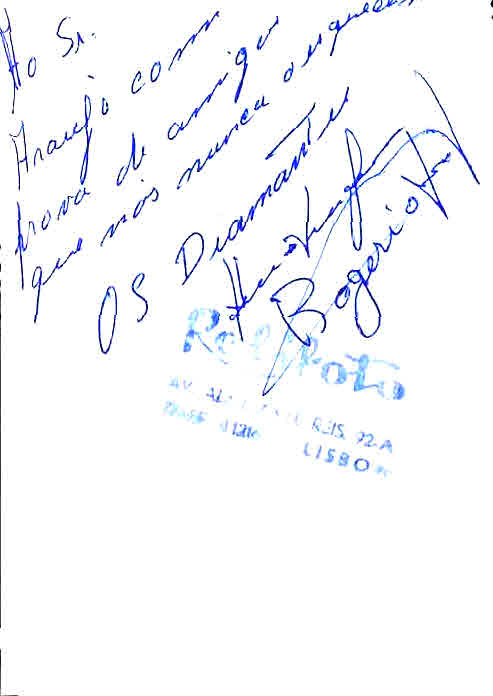 Ao Sr.
Araujo com
prova de amigos
que nós nunca esquecemos
OS Diamantes
Rogerio
AV. ALMIRANTE REIS, 92-A
LISBOA